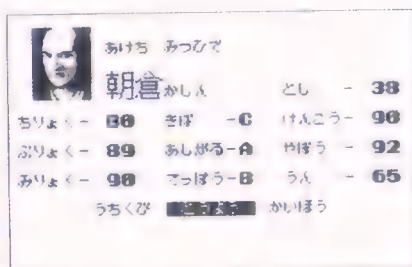 あけち みつひで
朝倉 かしん とし - 38
ちりょく- 80 きば -C けんこう- 90
ぶりょく- 89 あしがる-A やぼう- 92
みりょく- 90 てっぽう-B うん - 65
うちくび とうよう かいほう